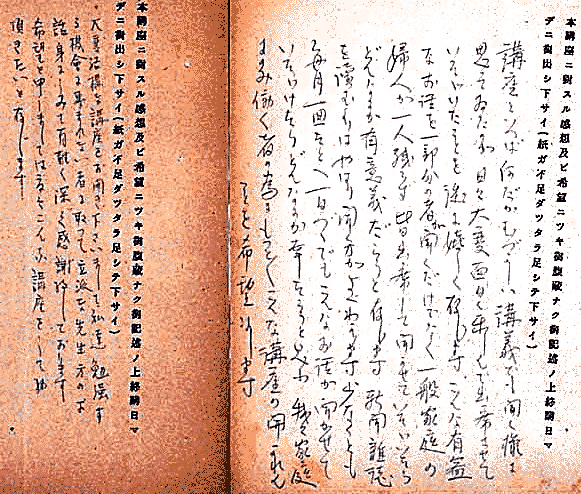 本講座ニ對スル感想及ビ希望ニツキ御腹蔵ナク御記述ノ上終講日マ
デニ御出シ下サイ(紙ガ不足ダツタラ足シテ下サイ)
講座といへば何だかむづかしい講義でも聞く様に
思つておりましたが日々大変面白く楽しく出席させて
いたゞいたことを誠に嬉しく存じます こんな有益
なお話を一部分の者が聞くだけでなく一般家庭の
婦人が一人残らず皆出席して聞かせていたゞいたら
どんなにか有意義だらうと存じます 新聞雑誌
を讀むよりはやはり聞く方がよくわかります 少なくとも
毎月一回など一日づつでもこんなお話が聞かせて
いたゞけたらどんなにか幸だらうと思ひ 我々家庭
にのみ働く者の為にもつとこんな講座の開かれん
ことを希望致します
本講座ニ對スル感想及ビ希望ニツキ御腹蔵ナク御記述ノ上終講日マ
デニ御出シ下サイ(紙ガ不足ダツタラ足シテ下サイ)
大変結構な講座をお開き下さいまして私達勉強す
る機会に恵まれない者に取つて立派な先生方のお
話身にしみて有難く深く感謝致しております
希望を申しましては言ふとこんな講座をして
頂きたいと存じます